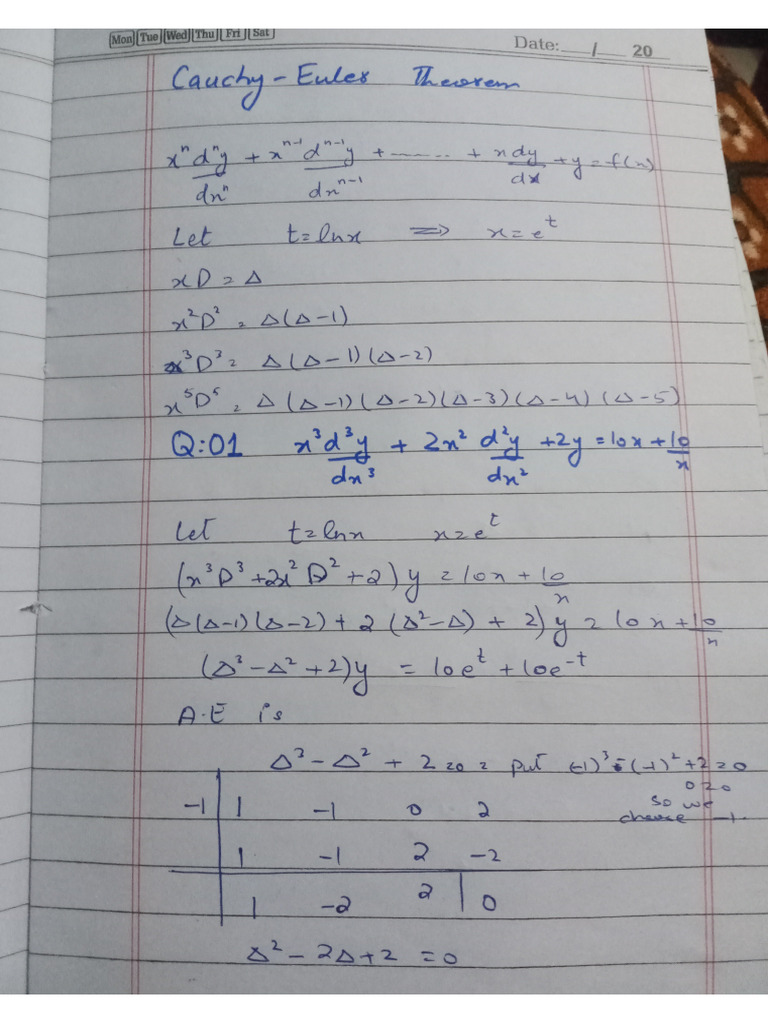 Mon Tue Wed Thu Fri Sat
Date: / 20
Cauchy-Euler Theorem
xⁿ dⁿy/dxⁿ + xⁿ⁻¹ dⁿ⁻¹y/dxⁿ⁻¹ + ....... + x dy/dx + y = f(x)
Let t = lnx ⇒ x = eᵗ
xD = Δ
x²D² = Δ(Δ-1)
x³D³ = Δ(Δ-1)(Δ-2)
x⁵D⁵ = Δ(Δ-1)(Δ-2)(Δ-3)(Δ-4)(Δ-5)
Q:01 x³ d³y/dx³ + 2x² d²y/dx² + 2y = 10x + 10/x
Let t = lnx x = eᵗ
(x³D³ + 2x²D² + 2)y = 10x + 10/x
(Δ(Δ-1)(Δ-2) + 2(Δ²-Δ) + 2)y = 10x + 10/x
(Δ³ - Δ² + 2)y = 10eᵗ + 10e⁻ᵗ
A.E is
Δ³ - Δ² + 2 = 0 = put (-1)³ - (-1)² + 2 = 0
0 = 0
so we
choose -1.
-1 | 1 -1 0 2
1 -1 2 -2
1 -2 2 | 0
Δ² - 2Δ + 2 = 0